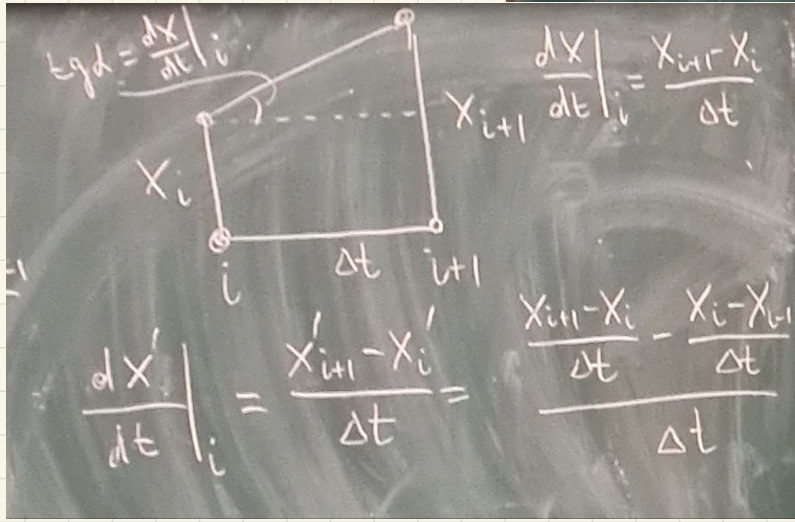 tgα = dX/dt|i
dX/dt|i = (Xi+1 - Xi)/Δt
Xi
Xi+1
Δt
i
i+1
-1
dX'/dt|i = (X'i+1 - Xi')/Δt = ((Xi+1 - Xi)/Δt - (Xi - Xi-1)/Δt)/Δt